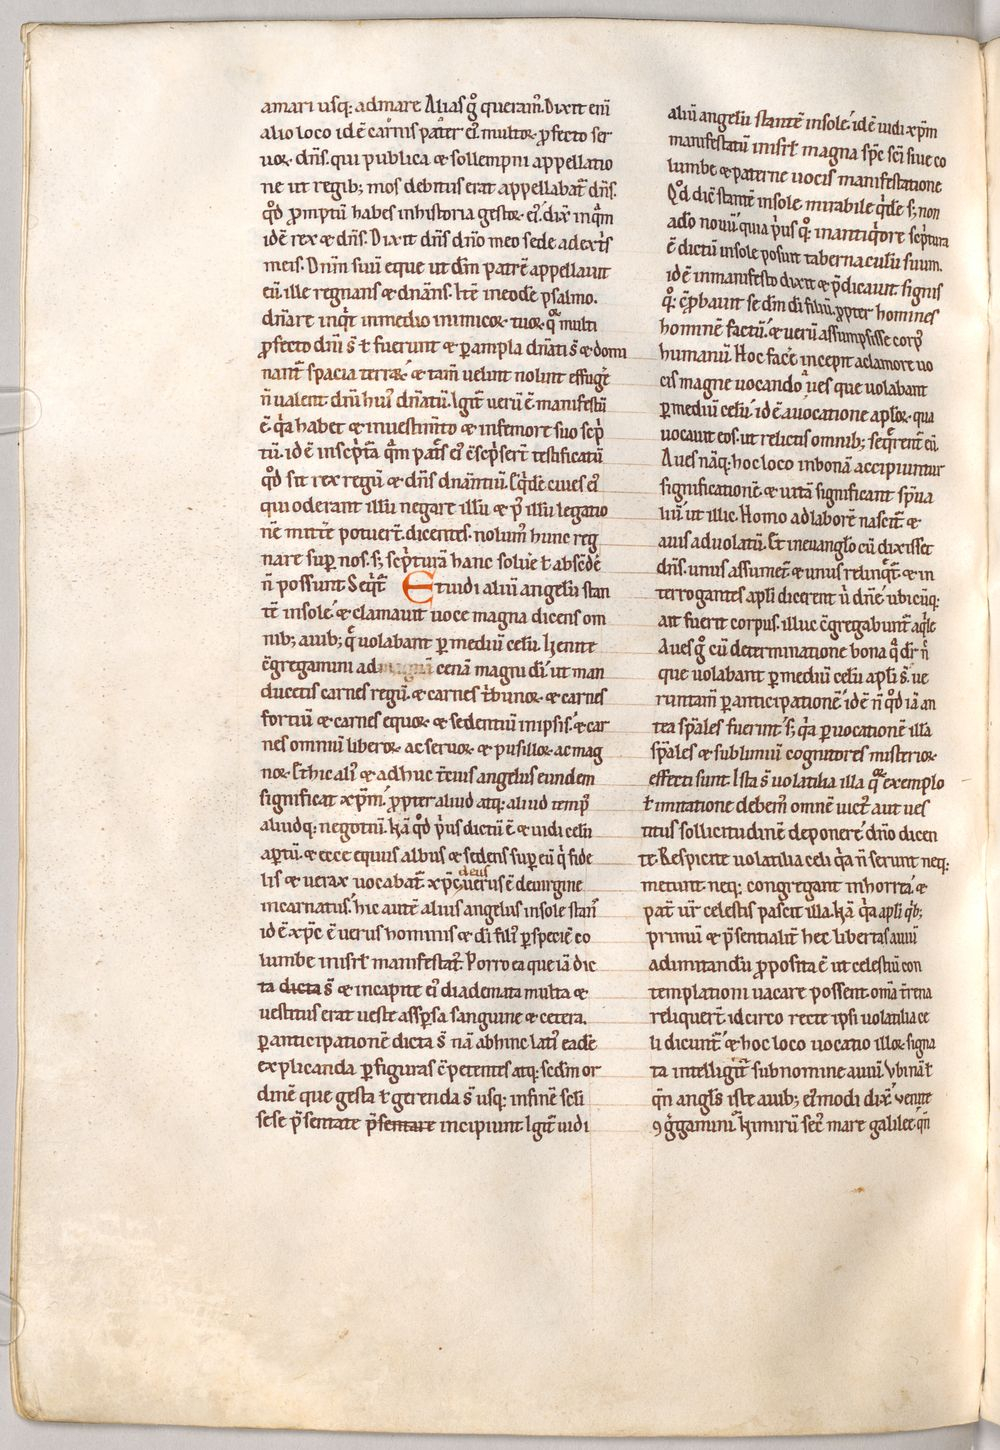 amari usq; ad mare Alias g̊ queram᷒. Dixit eni̅
alio loco id e̅ carnis pater ei᷒. multoꝝ ꝓfecto ser
uoꝝ. dn̅s. qui publica & sollempni appellatio
ne ut regib; mos debitus erat appellabat᷒ dn̅s.
qd̊ ꝓmptu̅ habes in historia gestoꝝ ei᷒. dix̅ inqͣm
ide̅ rex & dn̅s. Dixit dn̅s dn̅o meo sede adext̾s
meis. Dn̅m suu̅ eque ut dm̅ patre̅ appellauit
eu̅. ille regnans & dn̅ans. Ite̅ in eode̅ psalmo.
dn̅are inqⁱt in medio inimicoꝝ. tuoꝝ. qͣꝝ multi
ꝓfecto dn̅i s̅ ł fuerunt & ꝑampla dn̅ati s̅ & domi
nant᷒ spacia terraꝝ. & tam̅ uelint nolint effug̾e
n̅ ualent dn̅m hui᷒ dn̅atu̅. Igit᷒ ueru̅ e̅ manifestu̅
e̅. qⁱa habet & in uestim̅to & in femore suo scⁱp
tu̅. id e̅ in scⁱpt̅a qͣm pat̅s ei᷒ c̅scⁱpser̅t testificatu̅
qd̊ sit rex regu̅ & dn̅s dn̅antiu̅. Eqⁱde̅ ciues ei᷒
qui oderant illu̅ negare illu̅ & p᷒ illu̅ legatio
ne̅ mitt̾e potuer̅t. dicentes. nolum᷒ hunc reg
nare suꝑ nos. s; scⁱptura̅ hanc solu̾e ł absc̅d̾e
n̅ possunt. Seqⁱt᷒ Et uidi aliu̅ angelu̅ stan
te̅ in sole. & clamauit uoce magna dicens om
nib; auib; q̅ uolabant ꝑ mediu̅ celu̅. Uenite
c̅gregamini ad cena̅ magni di̅. ut man
ducetis carnes regu̅. & carnes tⁱbunoꝝ. & carnes
fortiu̅ & carnes equoꝝ. & sedentiu̅ in ipsis. & car
nes omniu̅ liberoꝝ. ac seruoꝝ. & pusilloꝝ. ac mag
noꝝ. Et hic ali᷒ & adhuc t̾cius angelus eundem
significat xp̅m. ꝓpter aliud atq; aliud temp᷒
aliudq; negotiu̅. Na̅ qd̊ pⁱus dictu̅ e̅ & uidi celu̅
aꝑtu̅. & ecce equus albus & sedens suꝑ eu̅ qⁱ fide
lis & uerax uocabat᷒. xp̅c deus uerus e̅ de uirgine
incarnatus. hic aute̅ alius angelus in sole stans
id e̅ xp̅c e̅ uerus hominis & di̅ fili᷒ ꝑ specie̅ co
lumbe in isrł manifestat᷒. Porro ea que ia̅ dic
ta dicta s̅ & in capite ei᷒ diademata multa &
uestitus erat ueste asꝑsa sanguine & cetera.
ꝑ anticipatione̅ dicta s̅ na̅ abhinc lati᷒ eade̅
explicanda ꝑ figuras c̅petentes atq; scd̅m or
dine̅ que gesta ł gerenda s̅ usq; in fine̅ scłi
sese p̅sentate p̅sentare incipiunt. Igit᷒ uidi
aliu̅ angelu̅ stante̅ in sole. id e̅ uidi xp̅m
manifestatu̅ in isrł magna sp̅c sci̅ siue co
lumbe & paterne uocis manifestatione
Qd̊ dic̅ stante̅ in sole. mirabile qⁱde̅ s; non
adeo nouu̅. quia pⁱus qq̊; in antiqⁱore scⁱptura
e̅ dictu̅ in sole posuit tabernaculu̅ suum.
id e̅ in manifesto duxit & p̅dicauit. signis
qq̊; c̅ꝓbauit se dm̅ di̅ filiu̅. ꝓpter homines
homine̅ factu̅. & ueru̅ assumpsisse corp᷒
humanu̅. Hoc fac̾e incepit a clamore uo
cis magne uocando aues que uolabant
ꝑ mediu̅ celu̅. id e̅ a uocatione apłoꝝ. qua
uocauit eos. ut relictis omnib; seqⁱrent᷒ eu̅.
Aues na̅q; hoc loco in bona̅ accipiuntur
significatione̅ & uita̅ significant sp̅ua
liu̅ ut illic. Homo ad labore̅ nascit᷒ &
auis ad uolatu̅. Et in euangło cu̅ dixisset
dn̅s. unus assumet᷒ & unus relinqⁱt᷒. & in
terrogantes apłi dicerent uⁱ dn̅e. ubicu̅q;
ait fuerit corpus. illuc c̅gregabunt᷒ aqⁱle
Aues g̊ cu̅ determinatione bona qͣ dr̅ n̅
que uolabant ꝑ mediu̅ celu̅ apłi s̅. ue
runtam̅ ꝑ anticipatione̅. id e̅ n̅ qd̊ ia̅ an
tea sp̅ales fuerint. s; qⁱa ꝑ uocatione̅ illa̅
sp̅ales & sublimiu̅ cognitores misterioꝝ.
effecti sunt. Ista s̅ uolatilia illa qͣꝝ exemplo
ł imitatione debem᷒ omne̅ uict᷒ aut ues
titus sollicitudine̅ deponere. dn̅o dicen
te. Respicite uolatilia celi qⁱa n̅ serunt neq;
metunt neq; congregant in horrea. &
pat̾ ur̅ celestis pascit illa. Na̅ qⁱa apłi qⁱb;
primu̅ & p̅sentialit̾ hec libertas auiu̅
ad imitandu̅ ꝓposita e̅ ut celestiu̅ con
templationi uacare possent om̅a t̾rena
reliquer̅t. idcirco recte ipsi uolatilia ce
li dicunt᷒. & hoc loco uocatio illoꝝ signa
ta intelligit᷒ sub nomine auiu̅. Ubina̅ ł
qn̅ angłs iste auib; ei᷒modi dix̅. uenite
ꝯg̾gamini. Nimiru̅ sec᷒ mare galilee. qn̅